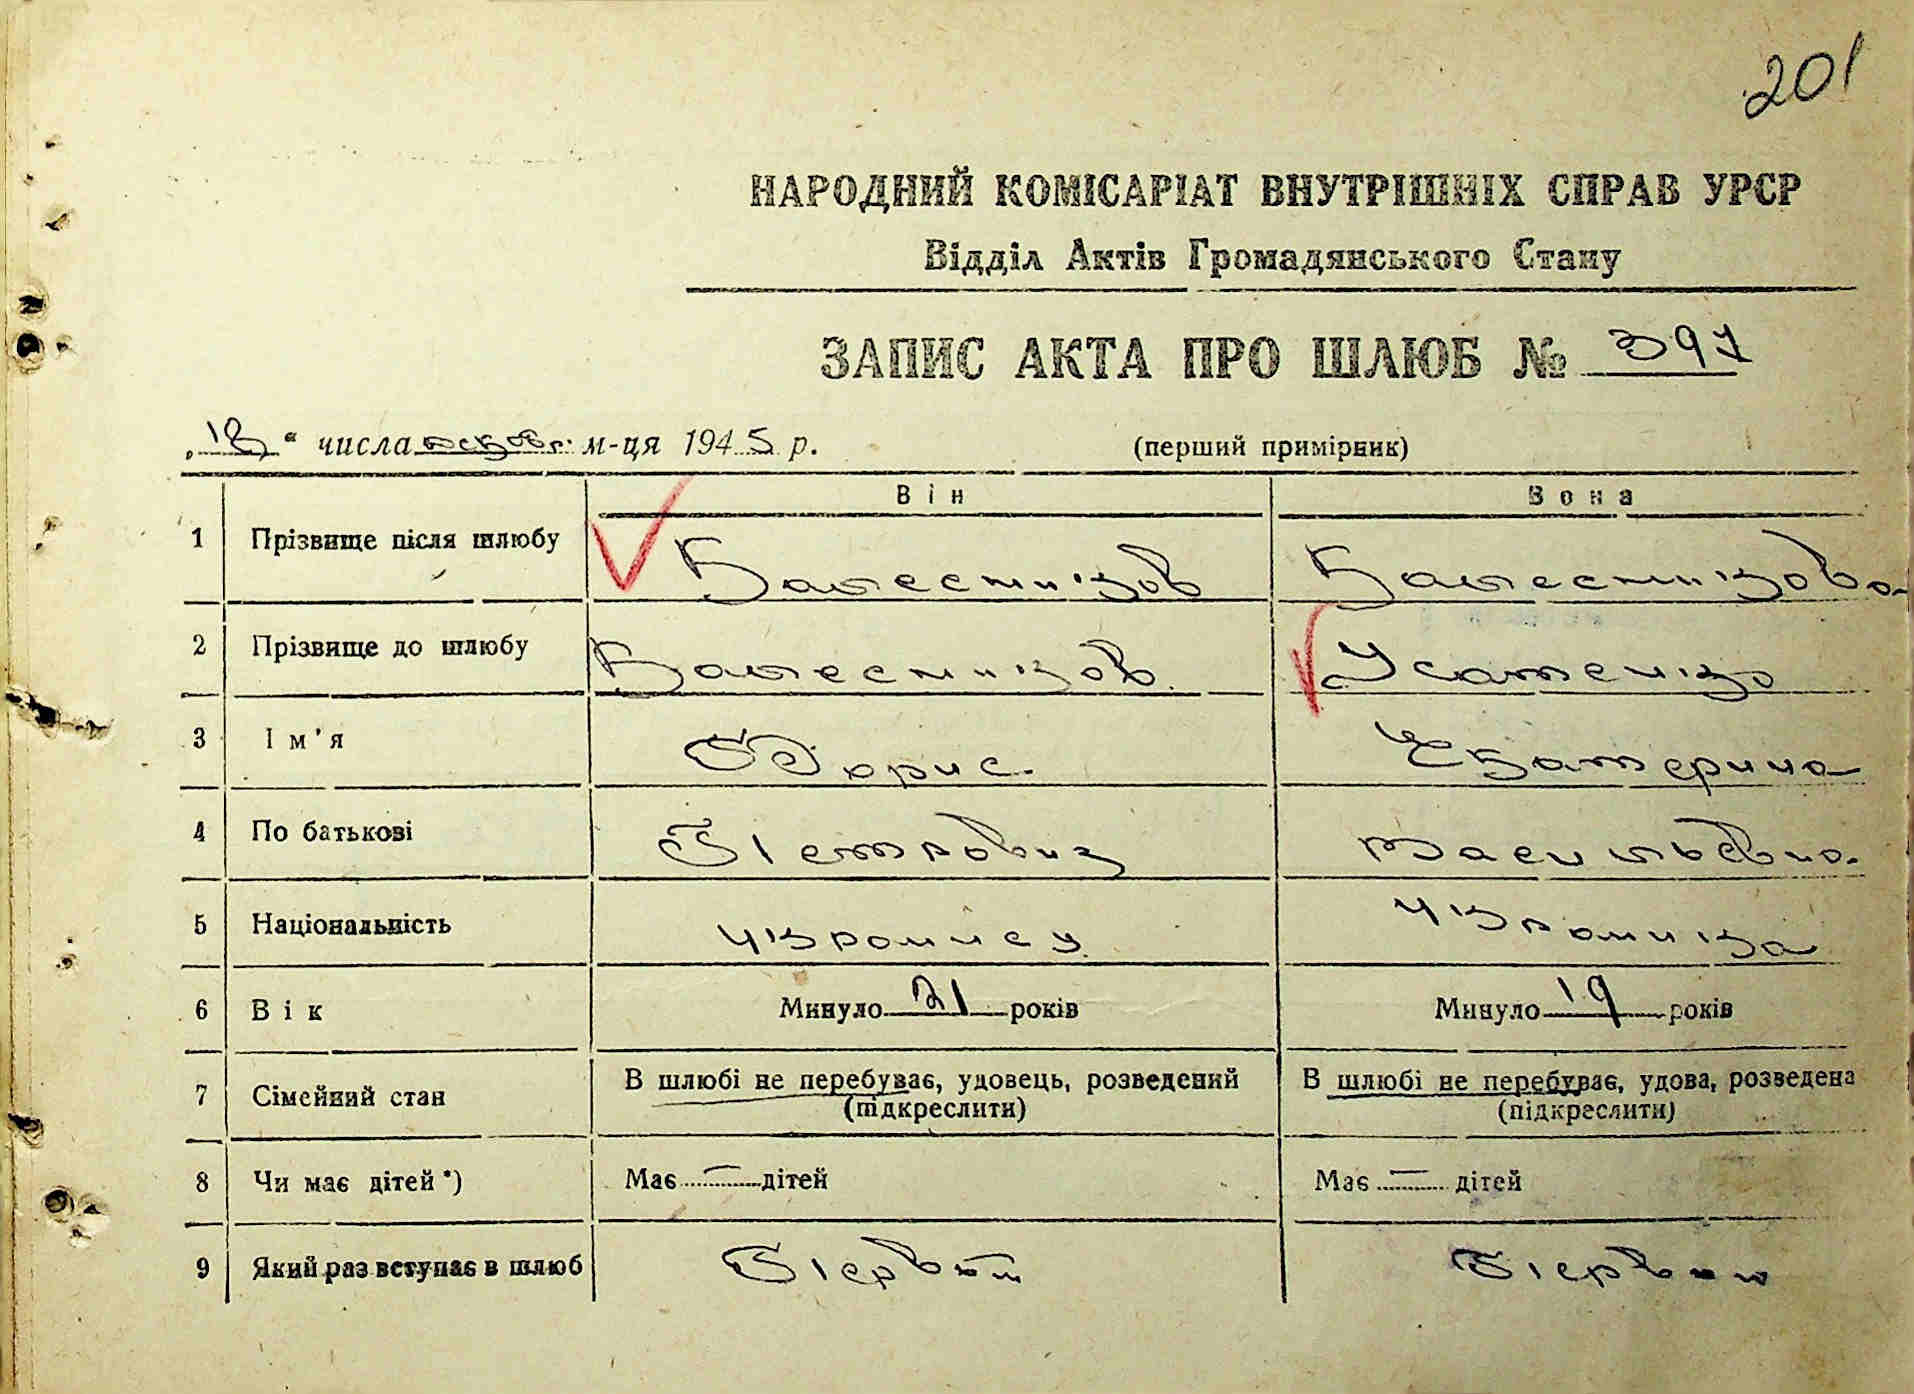 201
НАРОДНИЙ КОМІСАРІАТ ВНУТРІШНІХ СПРАВ УРСР
Відділ Актів Громадянського Стану
ЗАПИС АКТА ПРО ШЛЮБ № 397
„ “ числа м-ця 1945 р. (перший примірник)
Він Вона
1 Прізвище після шлюбу
2 Прізвище до шлюбу Усатенко
3 Ім'я Борис Екатерина
4 По батькові Петрович Васильевна
5 Національність украинец украинка
6 Вік Минуло 21 років Минуло 19 років
7 Сімейний стан В шлюбі не перебуває, удовець, розведений В шлюбі не перебуває, удова, розведена
(підкреслити) (підкреслити)
8 Чи має дітей*) Має — дітей Має — дітей
9 Який раз вступає в шлюб Первый Первый